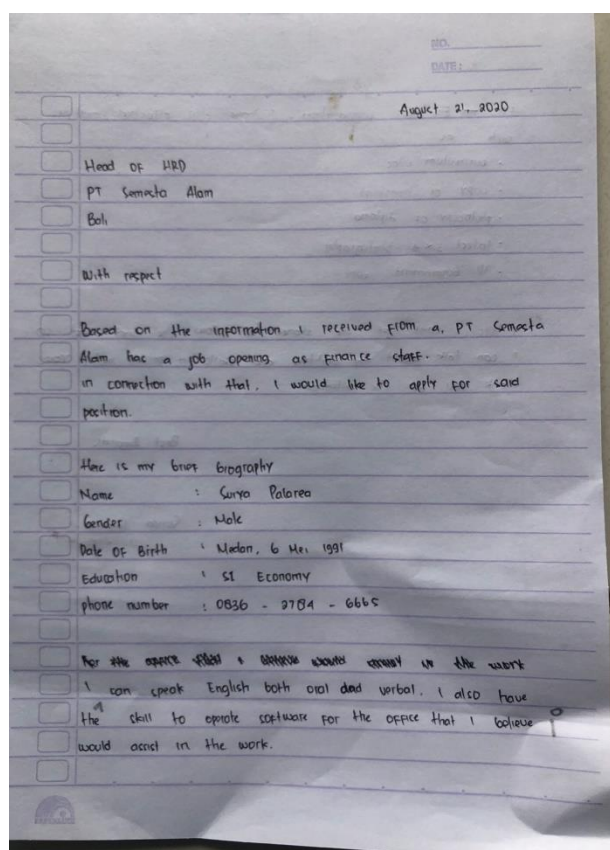 NO.
DATE:
August 21, 2020
Head OF HRD
PT Semesta Alam
Bali
With respect
Based on the information I received From a, PT Semesta
Alam has a job opening as finance staff.
in connection with that, I would like to apply for said
position.
Here is my brief biography
Name : Surya
Gender : Male
Date OF Birth : Medan, 6 Mei 1991
Education : S1 Economy
phone number : 0836 - 2784 - 6665
I can speak English both oral dad verbal. I also have
the skill to operate software for the office that I believe
would assist in the work.